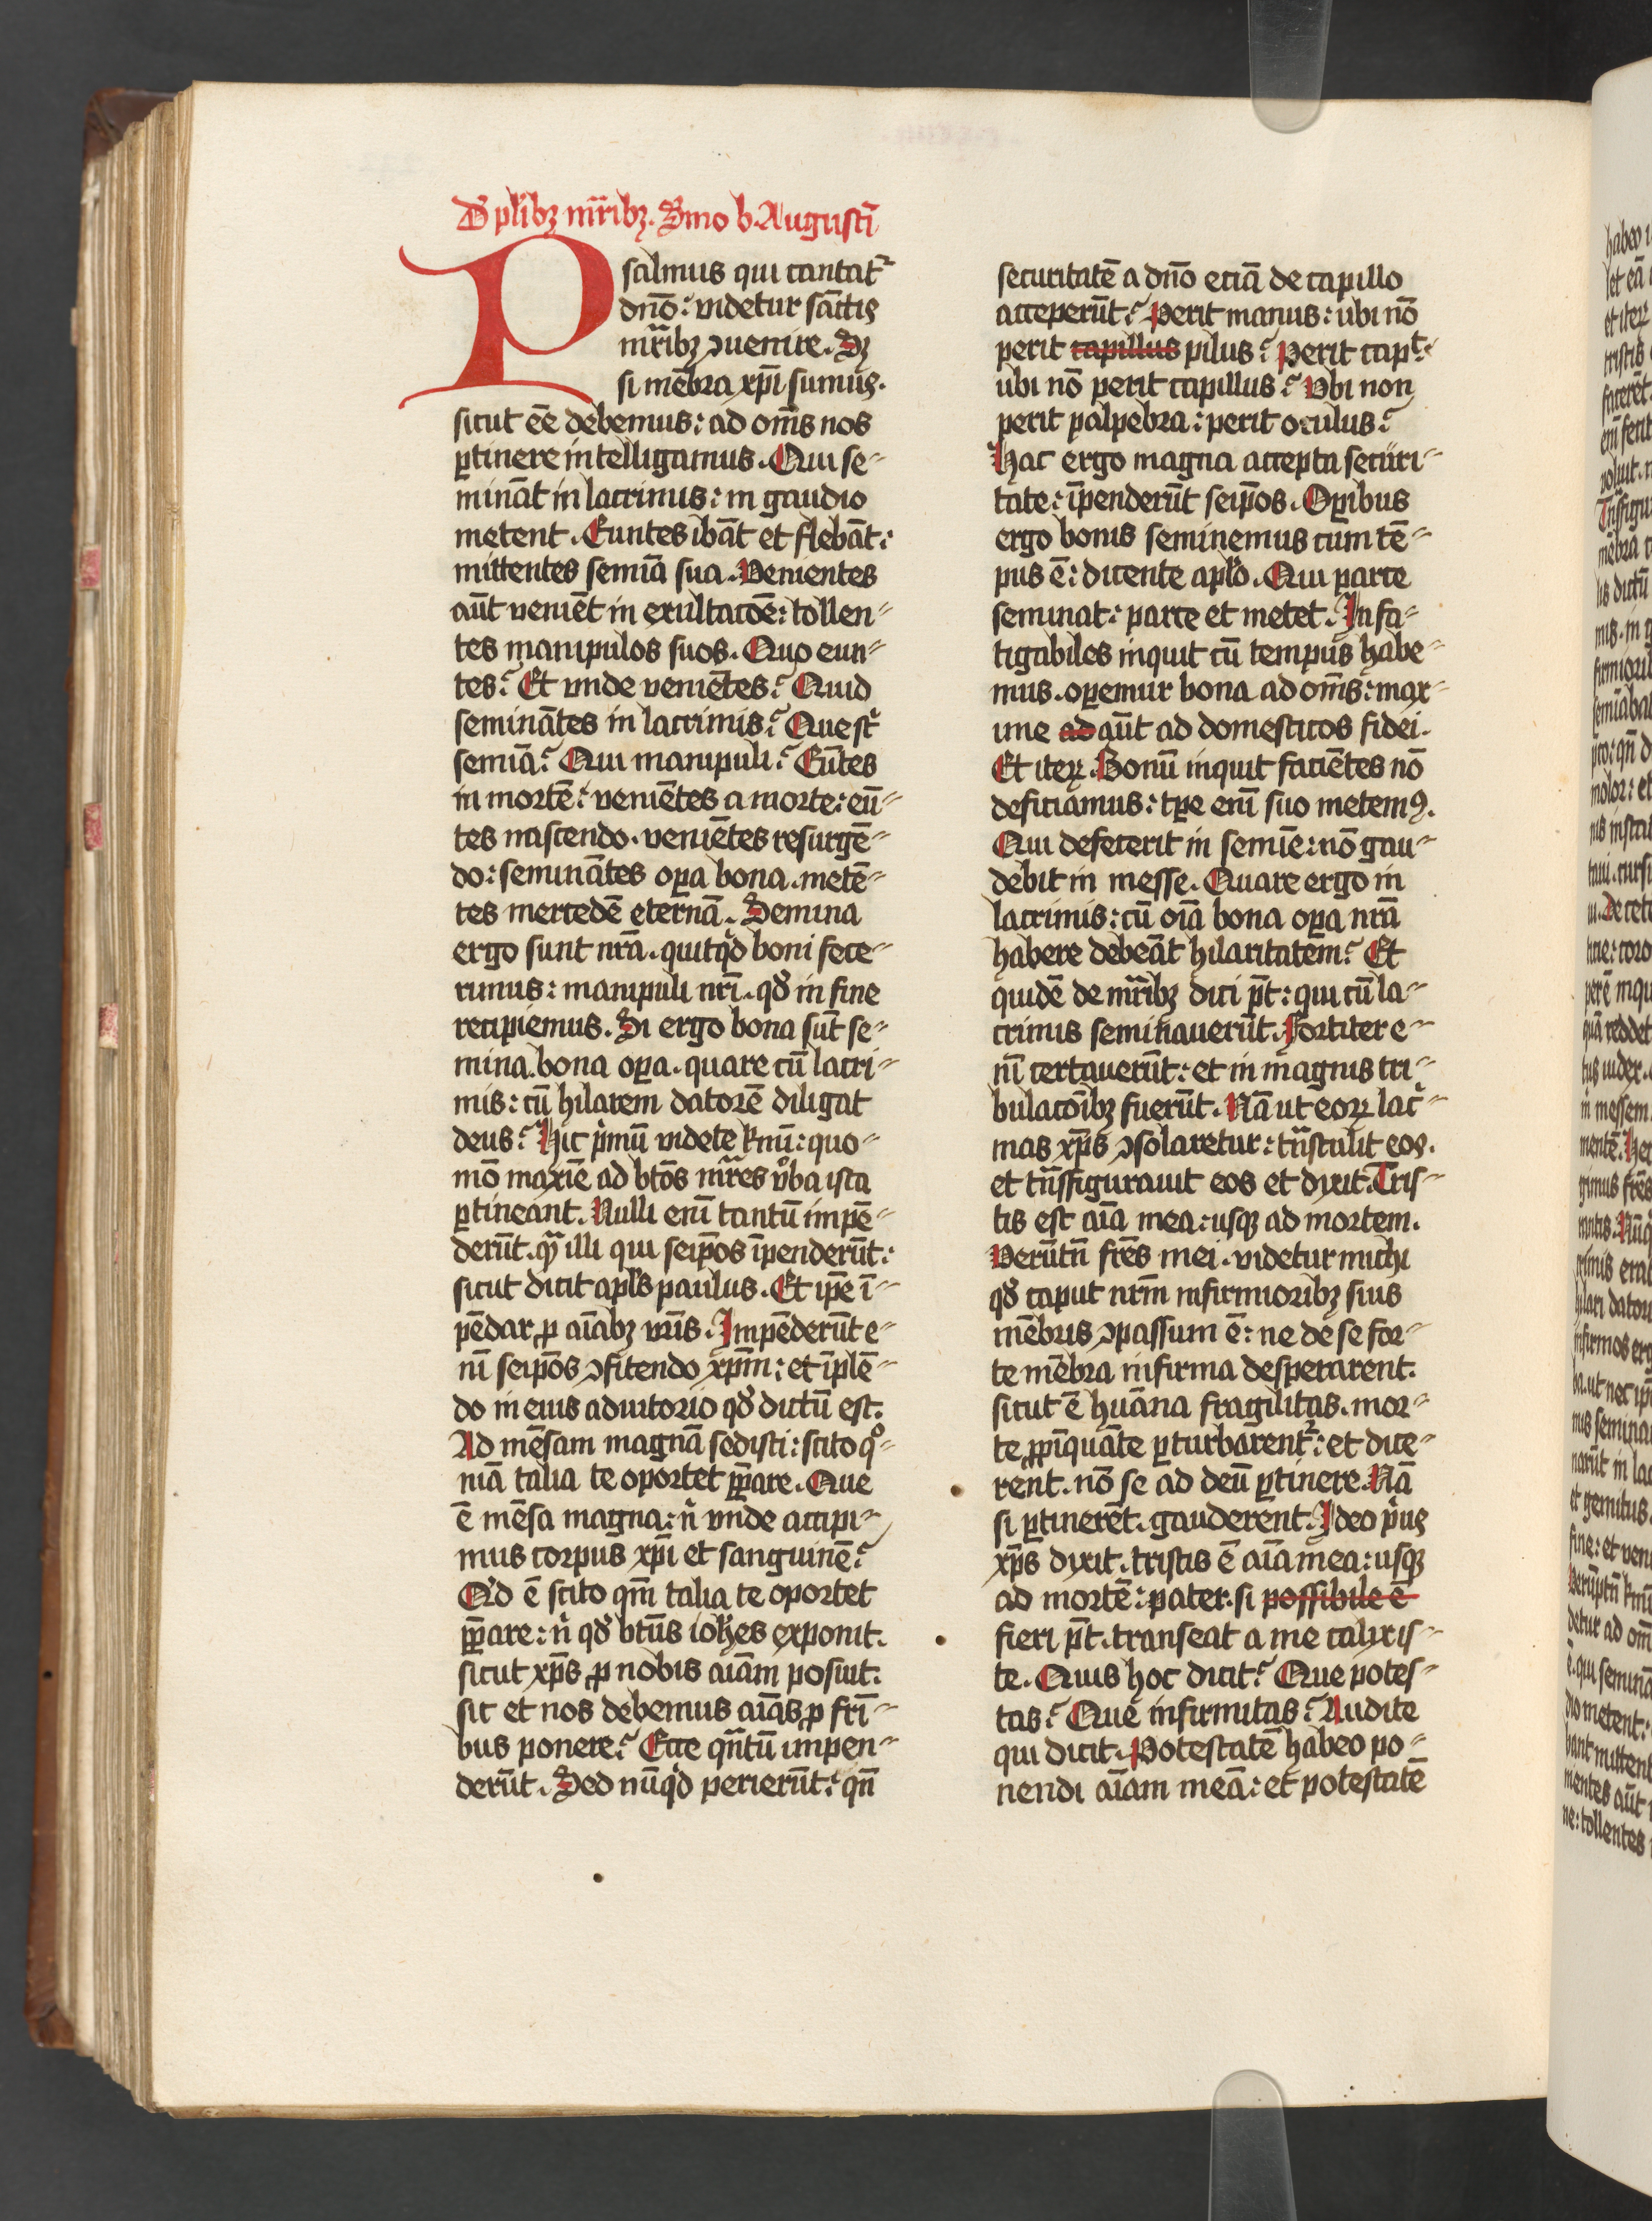 D̄ pl̄ibꝫ mr̄ibꝫ. Smo b. Augustī
Psalmus qui cantat᷑
dn̄o: videtur sāctis
mr̄ibꝫ ꝯuenire. Sꝫ
si mēbra xp̄i sumus.
sicut ēe debemus: ad om̄s nos
ꝑtinere intelligamus. Qui se⸗
mināt in lacrimis: in gaudio
metent. Euntes ibāt et flebāt:
mittentes semīa sua. Venientes
aūt veniēt in exultacōe: tollen⸗
tes manipulos suos. Quo eun⸗
tes? Et vnde veniētes? Quid
seminātes in lacrimis? Que st̄
semīa? Qui manipuli? Eūtes
in mortē: veniētes a morte: eū⸗
tes nascendo. veniētes resurgē⸗
do: seminātes oꝑa bona. metē⸗
tes mercedē eternā. Semina
ergo sunt nr̄a. quitqͥd boni fece⸗
rimus: manipuli nr̄i. qd̄ in fine
recipiemus. Si ergo bona sūt se⸗
mina. bona oꝑa. quare cū lacri⸗
mis: cū hilarem datorē diligat
deus? Hic pͥmū videte kͬmi: quo⸗
mō maxīe ad btōs mr̄es v̓ba ista
ꝑtineant. Nulli enī tantū impē⸗
derūt. qͣ illi qui seip̄os īpenderūt:
sicut dicit apl̄s paulus. Et ip̄e ī⸗
pēdar ꝓ aīabꝫ vr̄is. Impēderūt e⸗
nī seip̄os ꝯfitendo xp̄m: et īplē⸗
do in eius adiutorio qd̄ dictū est.
Ad mēsam magnā sedisti: scito qͦ⸗
niā talia te oportet p̄ꝑare. Que
ē mēsa magna: nͥ vnde accipi⸗
mus corpus xp̄i et sanguinē?
Qͥd ē scito qm̄ talia te oportet
p̄ꝑare: nͥ qd̄ btūs ioh̄es exponit.
sicut xp̄s ꝓ nobis aīam posuit.
sic et nos debemus aīas ꝓ frī⸗
bus ponere? Ecce qn̄tū impen⸗
derūt. Sed nūqͥd perierūt: qn̄
securitatē a dn̄o eciā de capillo
acceperūt? Perit manus: ubi nō
perit capillus pilus? Perit capt̓.
ubi nō perit capillus? Vbi non
perit palpebra: perit oculus?
Hac ergo magna accepta securi⸗
tate: īpenderūt seip̄os. Oꝑibus
ergo bonis seminemus cum tē⸗
pus ē: dicente apl̄o. Qui parce
seminat: parce et metet. Infa⸗
tigabiles inquit cū tempus habe⸗
mus. oꝑemur bona ad om̄s: max⸗
ime ad aūt ad domesticos fidei.
Et iteꝝ. Bonū inquit faciētes nō
deficiamus: tꝑe enī suo metemꝰ.
Qui defecerit in semīe: nō gau⸗
debit in messe. Quare ergo in
lacrimis: cū oīa bona oꝑa nr̄a
habere debeāt hilaritatem? Et
quidē de mr̄ibꝫ dici p̄t: qui cū la⸗
crimis seminauerūt. Fortiter e⸗
nī certauerūt: et in magnis tri⸗
bulacōibꝫ fuerūt. Nā ut eoꝝ lac̓⸗
mas xp̄s ꝯsolaretur: tn̄stulit eos.
et tn̄sfigurauit eos et dyxit. Tris⸗
tis est aīa mea: usqꝫ ad mortem.
Verūtn̄ fr̄es mei. videtur michi
qd̄ caput nr̄m infirmioribꝫ suis
mēbris ꝯpassum ē: ne de se for⸗
te mēbra infirma desperarent.
sicut ē huāna fragilitas. mor⸗
te ꝓpīquāte ꝑturbarent᷑: et dice⸗
rent. nō se ad deū ꝑtinere. Nā
si ꝑtinerēt. gauderent. Ideo pͥus
xp̄s dyxit. tristis ē aīa mea: usqꝫ
ad mortē: pater. si possibile ē
fieri p̄t. transeat a me calix is⸗
te. Quis hoc dicit? Que potes⸗
tas? Que infirmitas? Audite
qui dicit. Potestatē habeo po⸗
nendi aīam meā: et potestatē